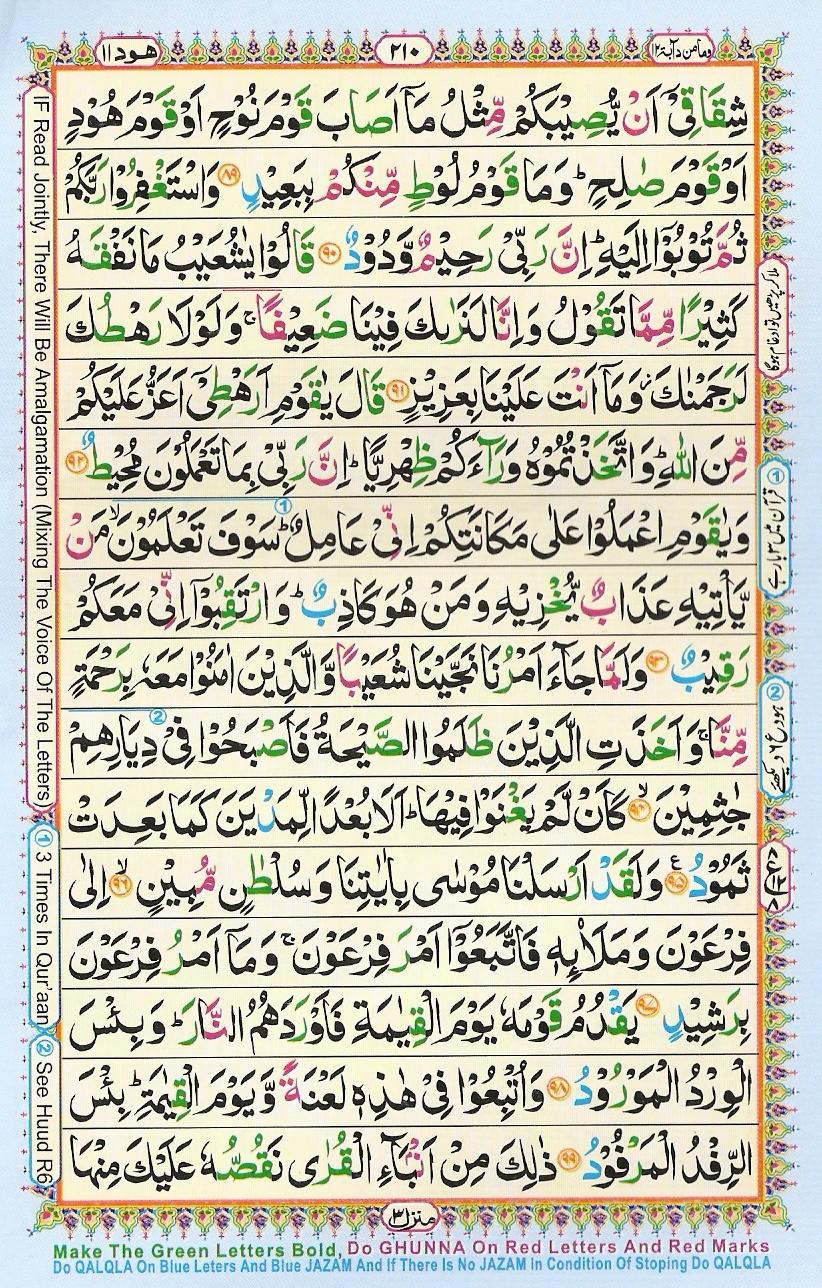 ومامن دآبة ١٢
٢١٠
هود ١١
شِقَاقِیْۤ اَنْ یُّصِیْبَكُمْ مِّثْلُ مَاۤ اَصَابَ قَوْمَ نُوْحٍ اَوْ قَوْمَ هُوْدٍ
اَوْ قَوْمَ صٰلِحٍ ؕ وَمَا قَوْمُ لُوْطٍ مِّنْكُمْ بِبَعِیْدٍ ۸۹ وَاسْتَغْفِرُوْا رَبَّكُمْ
ثُمَّ تُوْبُوْۤا اِلَیْهِ ؕ اِنَّ رَبِّیْ رَحِیْمٌ وَّدُوْدٌ ۹۰ قَالُوْا یٰشُعَیْبُ مَا نَفْقَهُ
كَثِیْرًا مِّمَّا تَقُوْلُ وَاِنَّا لَنَرٰىكَ فِیْنَا ضَعِیْفًا ۚ وَلَوْلَا رَهْطُكَ
لَرَجَمْنٰكَ ؗ وَمَاۤ اَنْتَ عَلَیْنَا بِعَزِیْزٍ ۹۱ قَالَ یٰقَوْمِ اَرَهْطِیْۤ اَعَزُّ عَلَیْكُمْ
مِّنَ اللّٰهِ ؕ وَاتَّخَذْتُمُوْهُ وَرَآءَكُمْ ظِهْرِیًّا ؕ اِنَّ رَبِّیْ بِمَا تَعْمَلُوْنَ مُحِیْطٌ ۹۲
وَیٰقَوْمِ اعْمَلُوْا عَلٰی مَكَانَتِكُمْ اِنِّیْ عَامِلٌ ؕ ① سَوْفَ تَعْلَمُوْنَ ۙ مَنْ
یَّاْتِیْهِ عَذَابٌ یُّخْزِیْهِ وَمَنْ هُوَ كَاذِبٌ ؕ وَارْتَقِبُوْۤا اِنِّیْ مَعَكُمْ
رَقِیْبٌ ۹۳ وَلَمَّا جَآءَ اَمْرُنَا نَجَّیْنَا شُعَیْبًا وَّالَّذِیْنَ اٰمَنُوْا مَعَهٗ بِرَحْمَةٍ
مِّنَّا ۚ وَاَخَذَتِ الَّذِیْنَ ظَلَمُوا الصَّیْحَةُ فَاَصْبَحُوْا ② فِیْ دِیَارِهِمْ
جٰثِمِیْنَ ۙ ۹۴ كَاَنْ لَّمْ یَغْنَوْا فِیْهَا ؕ اَلَا بُعْدًا لِّمَدْیَنَ كَمَا بَعِدَتْ
ثَمُوْدُ ۹۵ ع وَلَقَدْ اَرْسَلْنَا مُوْسٰی بِاٰیٰتِنَا وَسُلْطٰنٍ مُّبِیْنٍ ۙ ۹۶ اِلٰی
فِرْعَوْنَ وَمَلَا۟ىِٕهٖ فَاتَّبَعُوْۤا اَمْرَ فِرْعَوْنَ ۚ وَمَاۤ اَمْرُ فِرْعَوْنَ
بِرَشِیْدٍ ۹۷ یَقْدُمُ قَوْمَهٗ یَوْمَ الْقِیٰمَةِ فَاَوْرَدَهُمُ النَّارَ ؕ وَبِئْسَ
الْوِرْدُ الْمَوْرُوْدُ ۹۸ وَاُتْبِعُوْا فِیْ هٰذِهٖ لَعْنَةً وَّیَوْمَ الْقِیٰمَةِ ؕ بِئْسَ
الرِّفْدُ الْمَرْفُوْدُ ۹۹ ذٰلِكَ مِنْ اَنْۢبَآءِ الْقُرٰی نَقُصُّهٗ عَلَیْكَ مِنْهَا
منزل ٣
IF Read Jointly, There Will Be Amalgamation (Mixing The Voice Of The Letters)
① 3 Times In Qur'aan
② See Huud R6
ملا کر پڑھیں تو ادغام ہوگا
① قرآن میں ۳ بار ہے
② ہود ع ۶ دیکھئے
Make The Green Letters Bold, Do GHUNNA On Red Letters And Red Marks
Do QALQLA On Blue Leters And Blue JAZAM And If There Is No JAZAM In Condition Of Stoping Do QALQLA